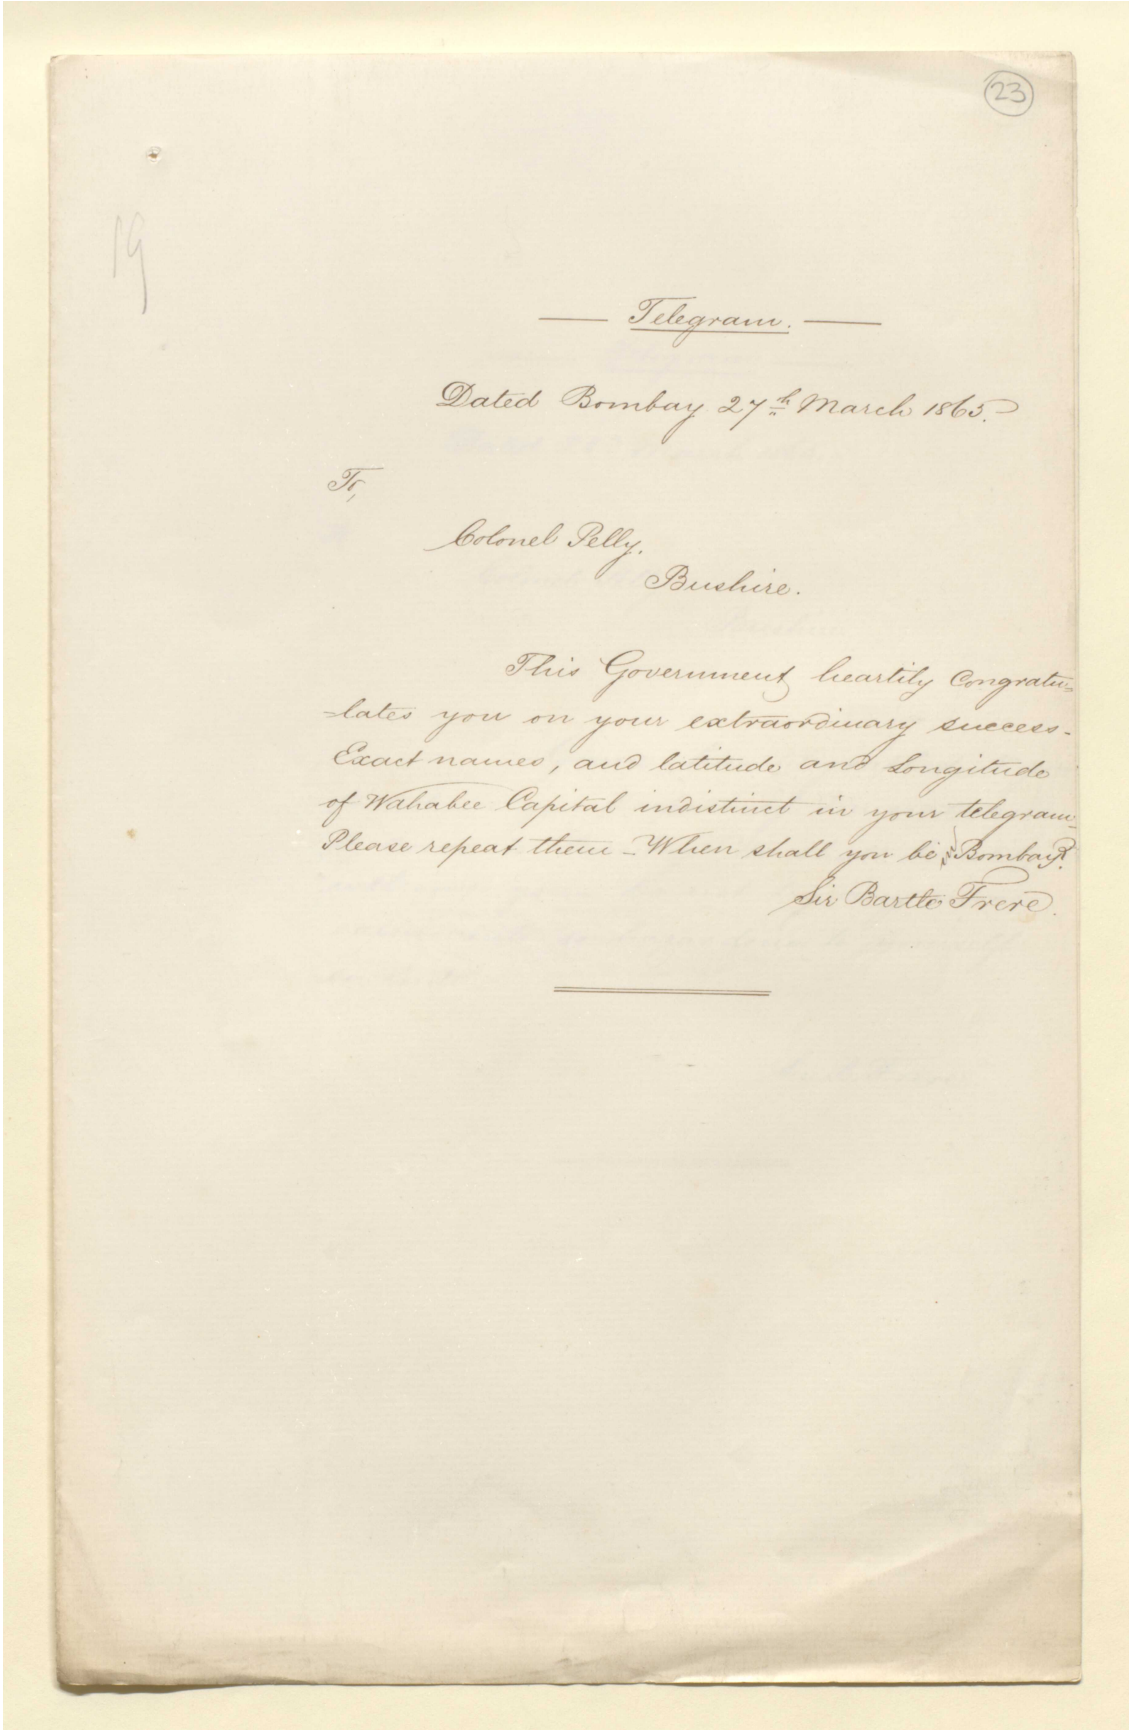 23
19
Telegram.
Dated Bombay 27th March 1865.
To,
Colonel Pelly.
Bushire.
This Government heartily Congratu=
=lates you on your extraordinary success-
Exact names, and latitude and Longitude
of Wahabee Capital indistinct in your telegram-
Please repeat them - When shall you be in Bombay?
Sir Bartle Frere.